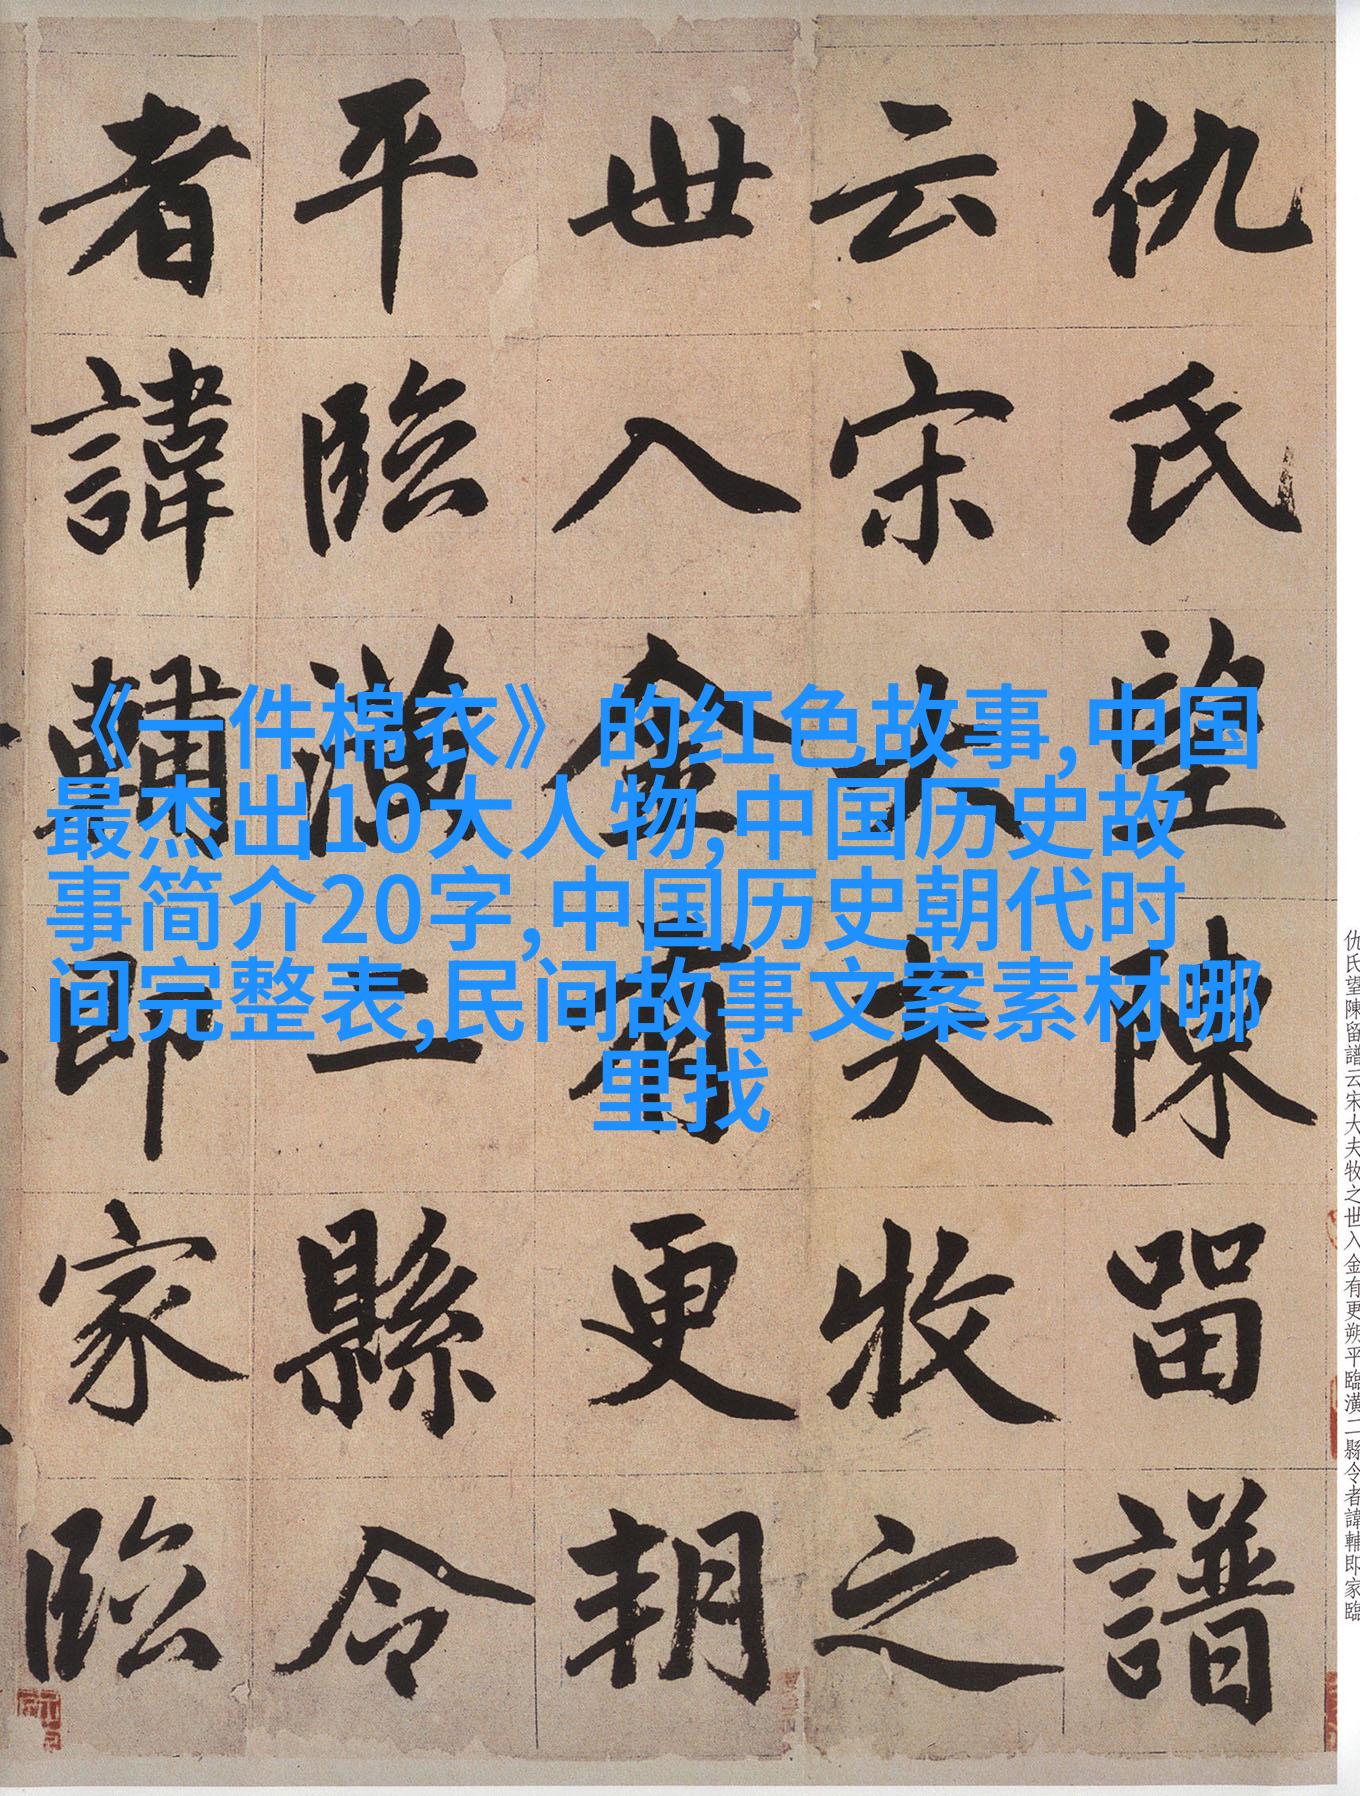 仇氏望陳留譜
云宋大夫牧之
世入金有更朔
平臨潢二縣令
者諱輔即家臨
《一件棉衣》的红色故事,中国
最杰出10大人物,中国历史故
事简介20字,中国历史朝代时
间完整表,民间故事文案素材哪
里找
仇氏望陳留譜云宋大夫牧之世入金有更朔平臨潢二縣令者諱輔即家臨